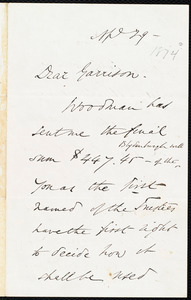 Apl 29 -
1874
Dear Garrison.
Woodman has
sent me the final
sum $447.45 - of the
You as the first
named of the Trustees
have the first right
to decide how it
shall be used